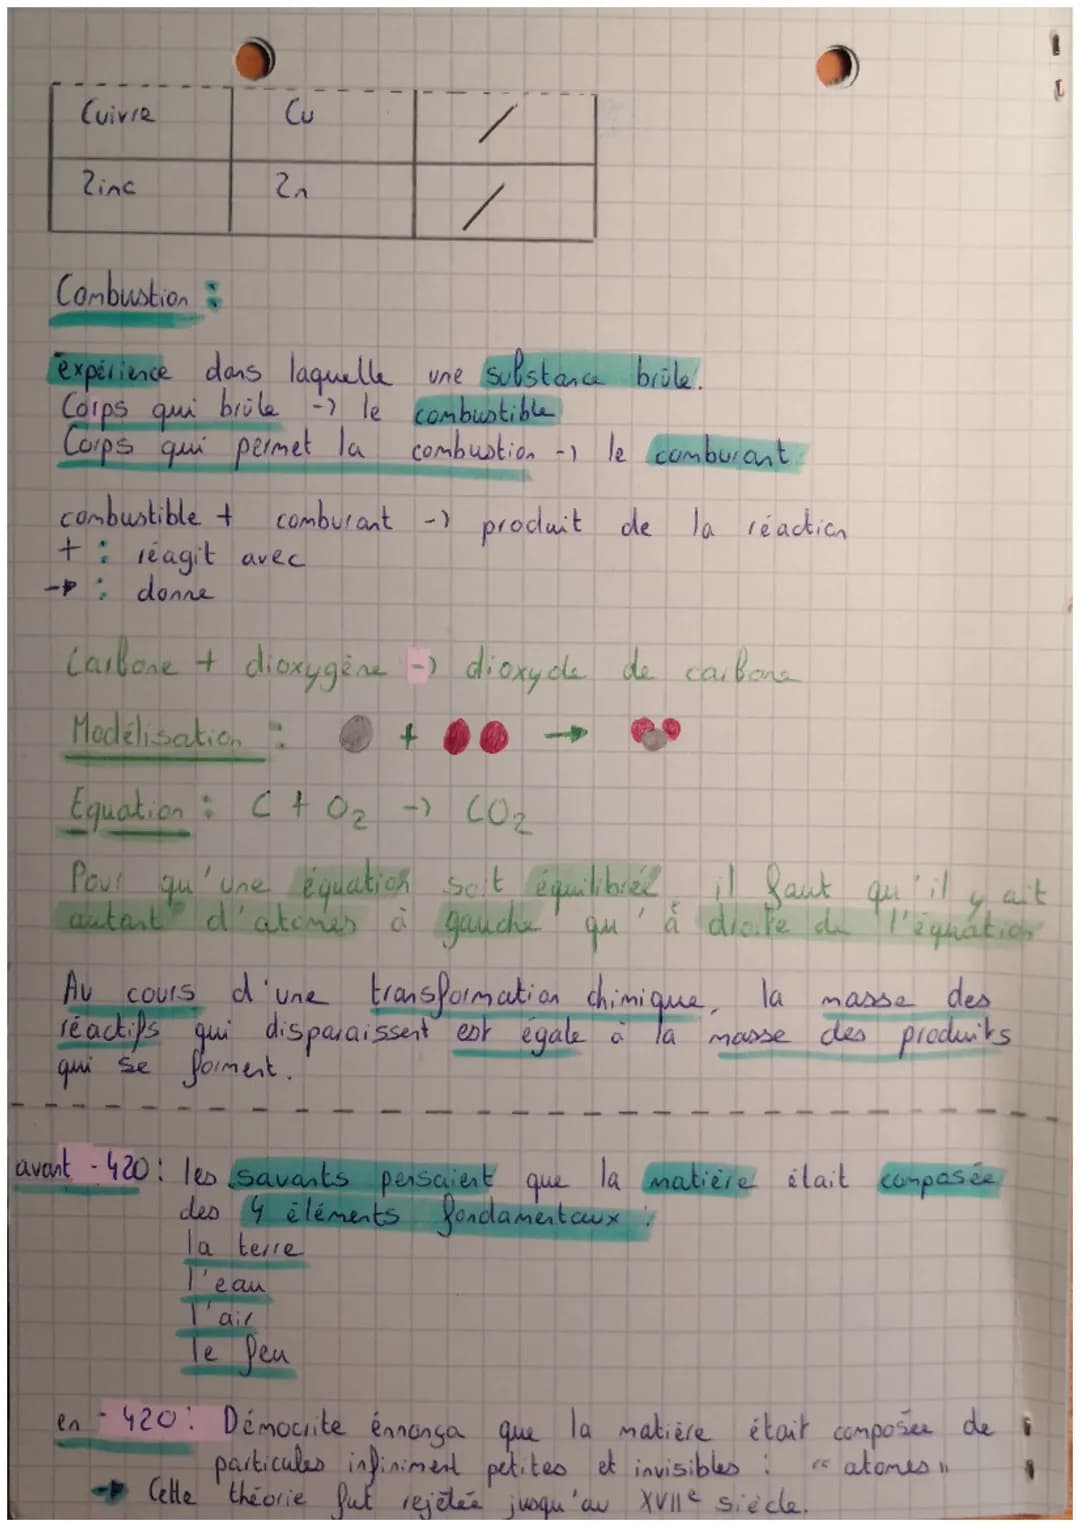 Cuivre Cu /
Zinc Zn /
Combustion :
expérience dans laquelle une substance brûle.
Corps qui brûle -> le combustible
Corps qui permet la combustion -> le comburant.
combustible + comburant -> produit de la réaction
+ : réagit avec
-> : donne
Carbone + dioxygène -> dioxyde de carbone
Modélisation : + →
Equation : C + O₂ -> CO₂
Pour qu'une équation soit équilibrée, il faut qu'il y ait
autant d'atomes à gauche qu'à droite de l'équation
Au cours d'une transformation chimique, la masse des
réactifs qui disparaissent est égale à la masse des produits
qui se forment.
avant - 420 : les savants pensaient que la matière était composée
des 4 éléments fondamentaux :
la terre
l'eau
l'air
le feu
en - 420 : Démocrite énnonça que la matière était composée de
particules infiniment petites et invisibles : "atomes"
→ Cette théorie fut rejetée jusqu'au XVIIe siècle.